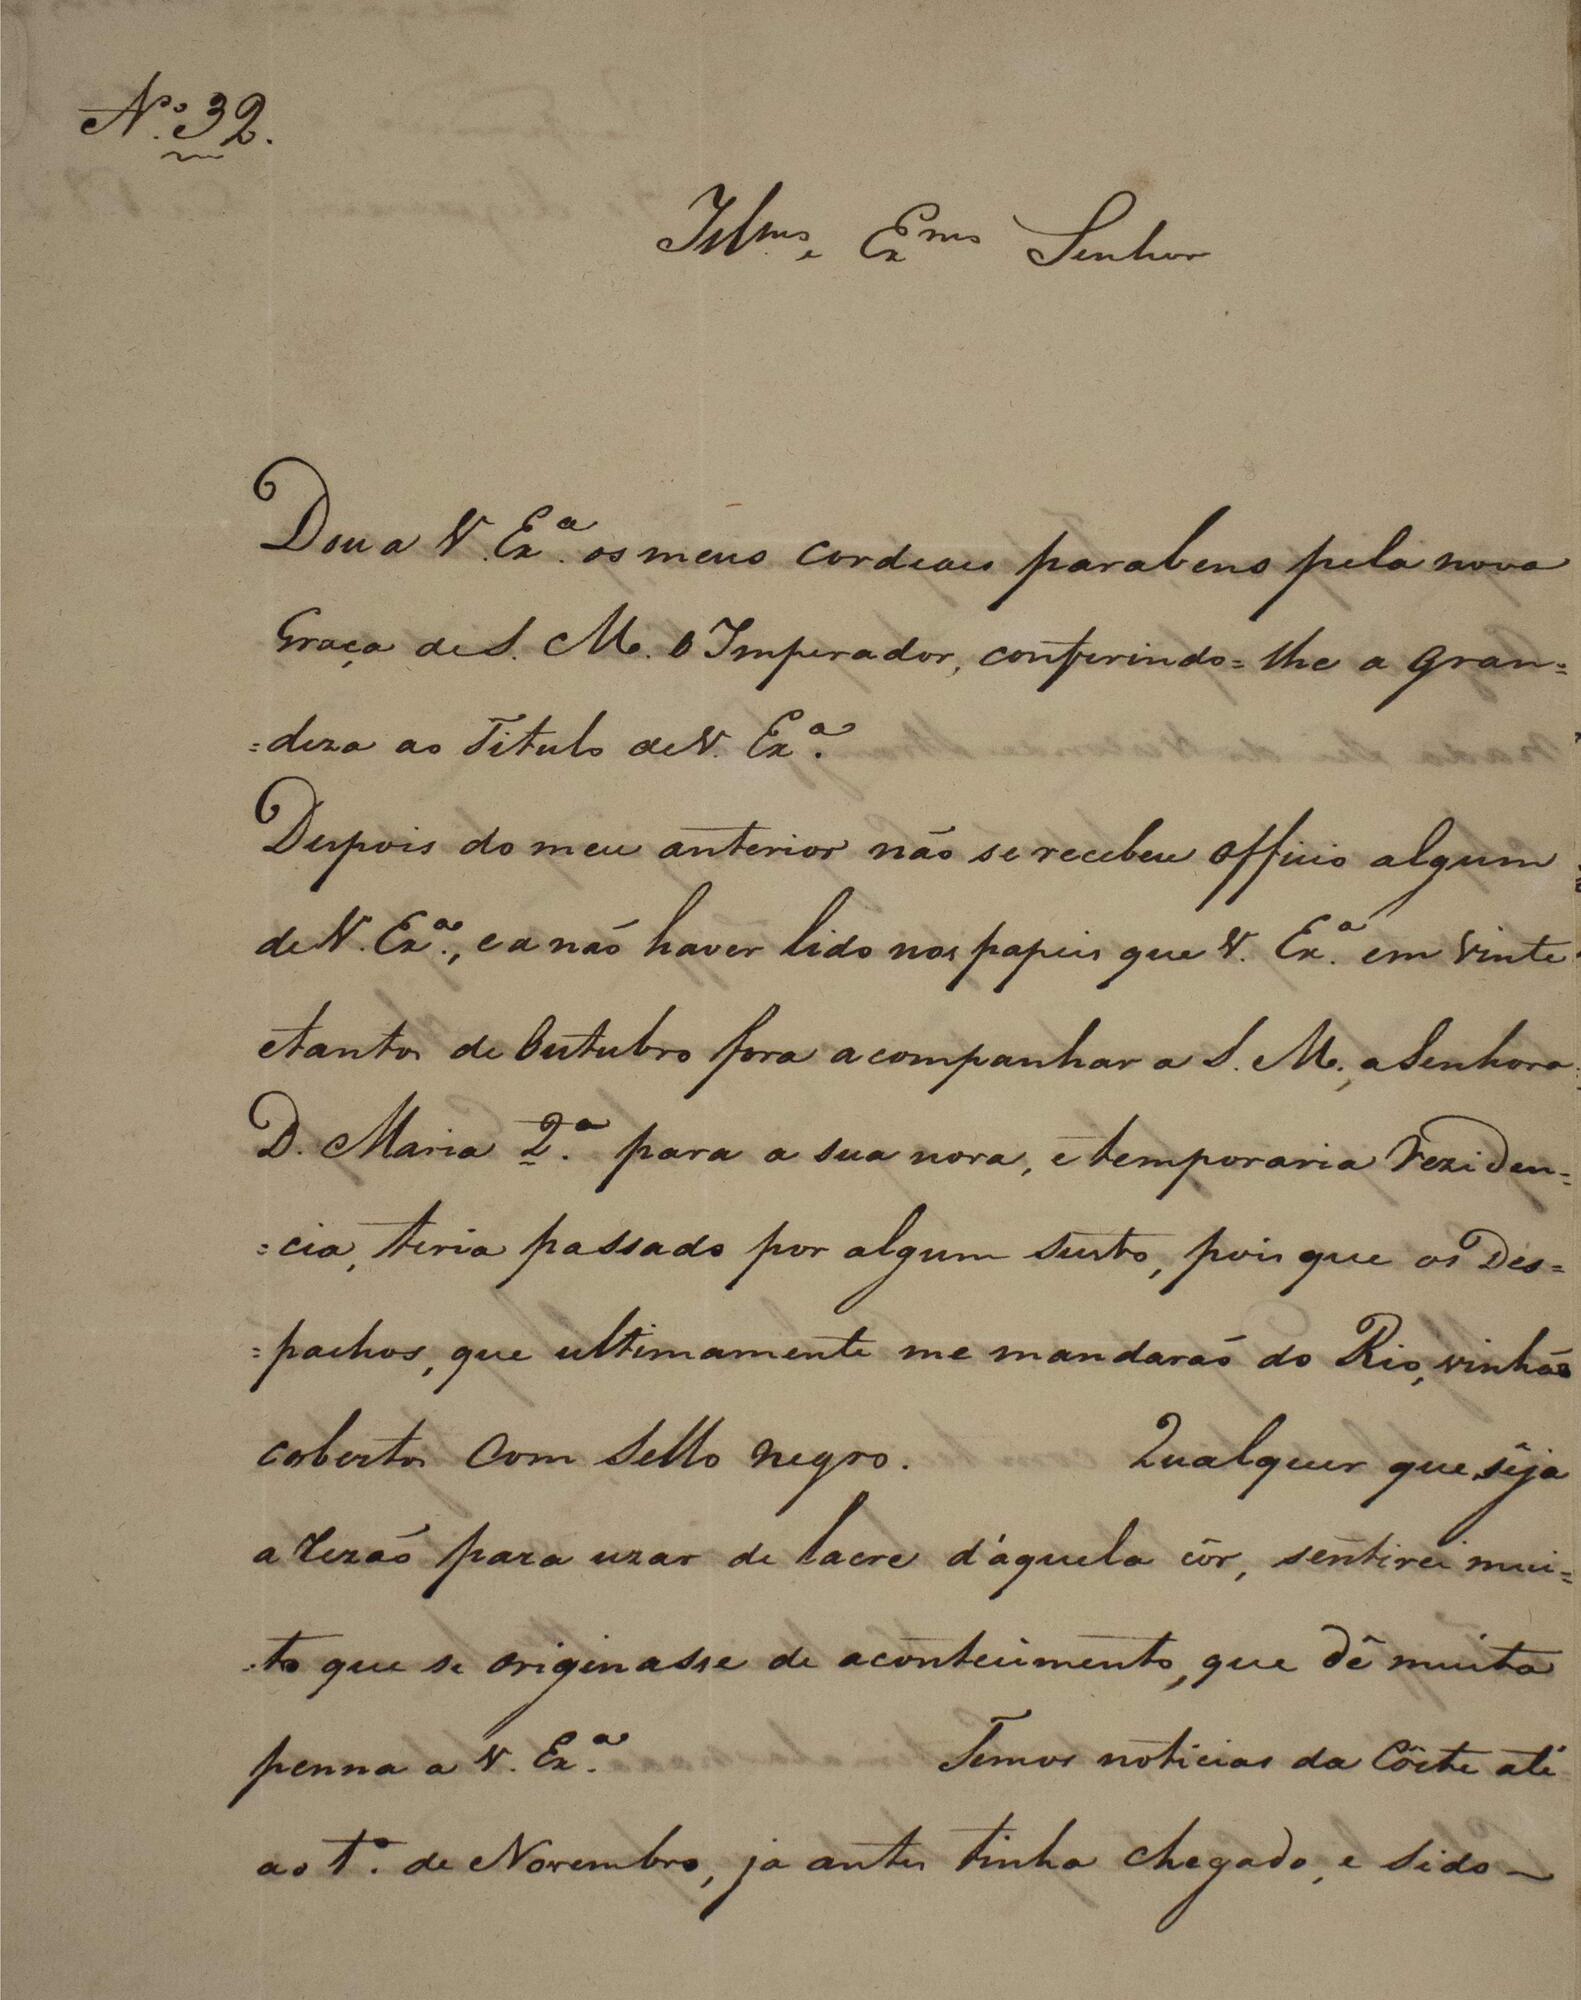 N.º 32.
Illmo. e Exmo Senhor
Dou a V. Exª. os meus cordeaes parabens pela nova
Graça de S. M. O Imperador, conferindo=lhe a Gran=
=deza ao Titulo de V. Exª.
Depois do meu anterior não se recebeu Officio algum
de V. Exª., e a não haver lido nos papeis que V. Exª. em vinte
e tantos de Outubro fora acompanhar a S. M., a Senhora
D. Maria 2.ª para a sua nova, e temporaria reziden=
=cia, teria passado por algum susto, pois que os Des=
=pachos, que ultimamente me mandarão do Rio, vinhão
cobertos com Sello negro. Qualquer que sêja
a rezão para uzar de lacre d'aquela côr, sentirei mui=
=to que se originasse de acontecimento, que dê muita
penna a V. Exª. Temos noticias da Côrte até
ao 1.º de Novembro, ja antes tinha chegado, e sido